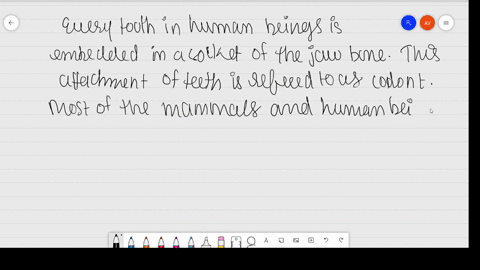 Every tooth in human beings is
embedded in a socket of the jaw bone. This
attachment of teeth is refered to as codont.
Most of the mammals and human bei